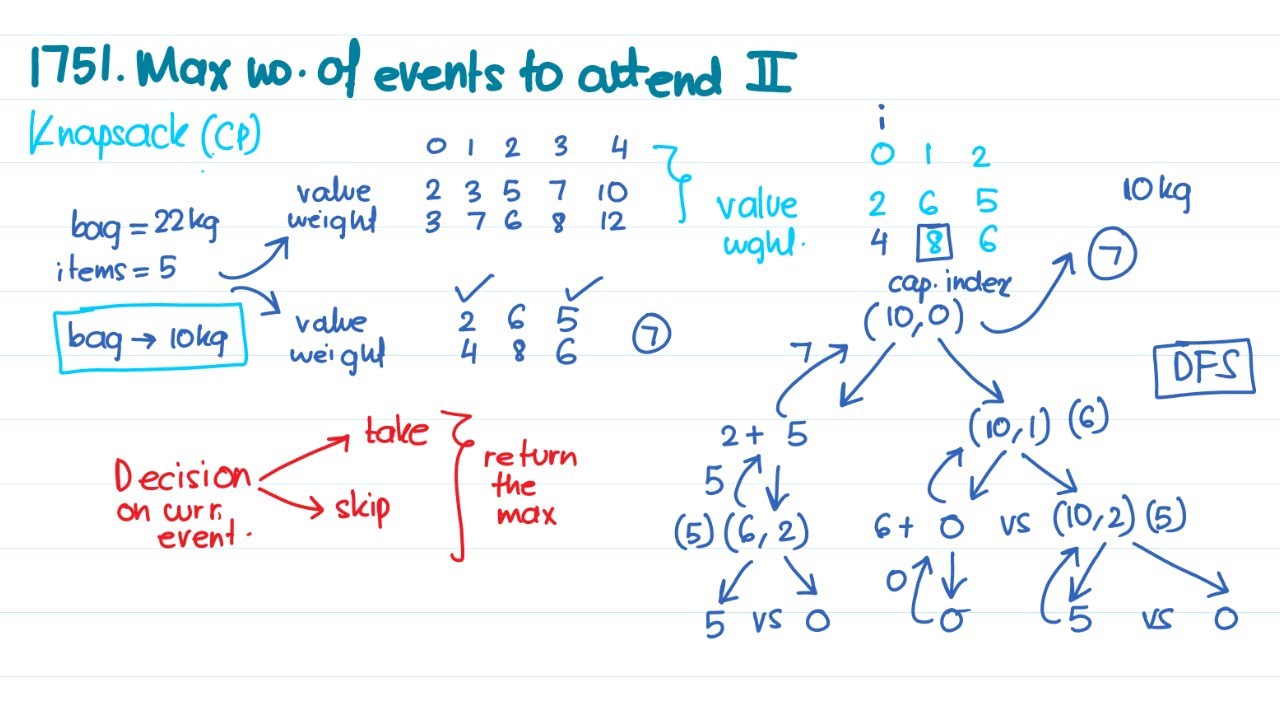 1751. Max no. of events to attend II
Knapsack (CP)
0 1 2 3 4
value 2 3 5 7 10
weight 3 7 6 8 12
bag = 22kg
items = 5
bag → 10kg
value 2 6 5
weight 4 8 6
7
Decision
on curr.
event.
take
skip
return
the
max
i
0 1 2
value 2 6 5
wght. 4 8 6
10kg
cap. index
(10,0)
7
DFS
7
2 + 5
(10,1) (6)
5
(5) (6,2)
6 + 0 vs (10,2) (5)
0
5 vs 0
0
5 vs 0